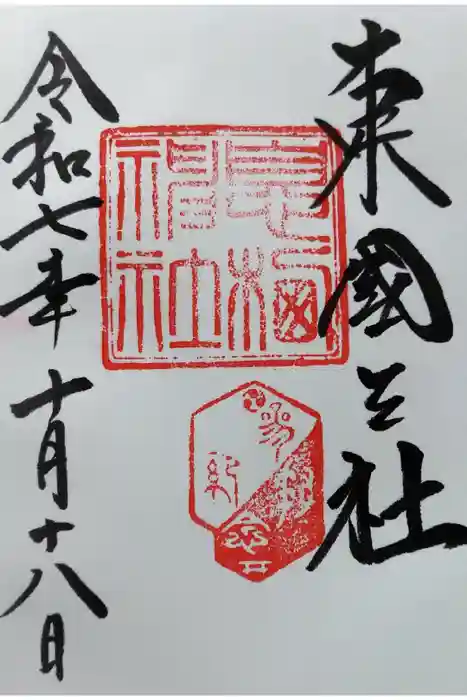 東國三社
息栖神社
令和七年十月十八日